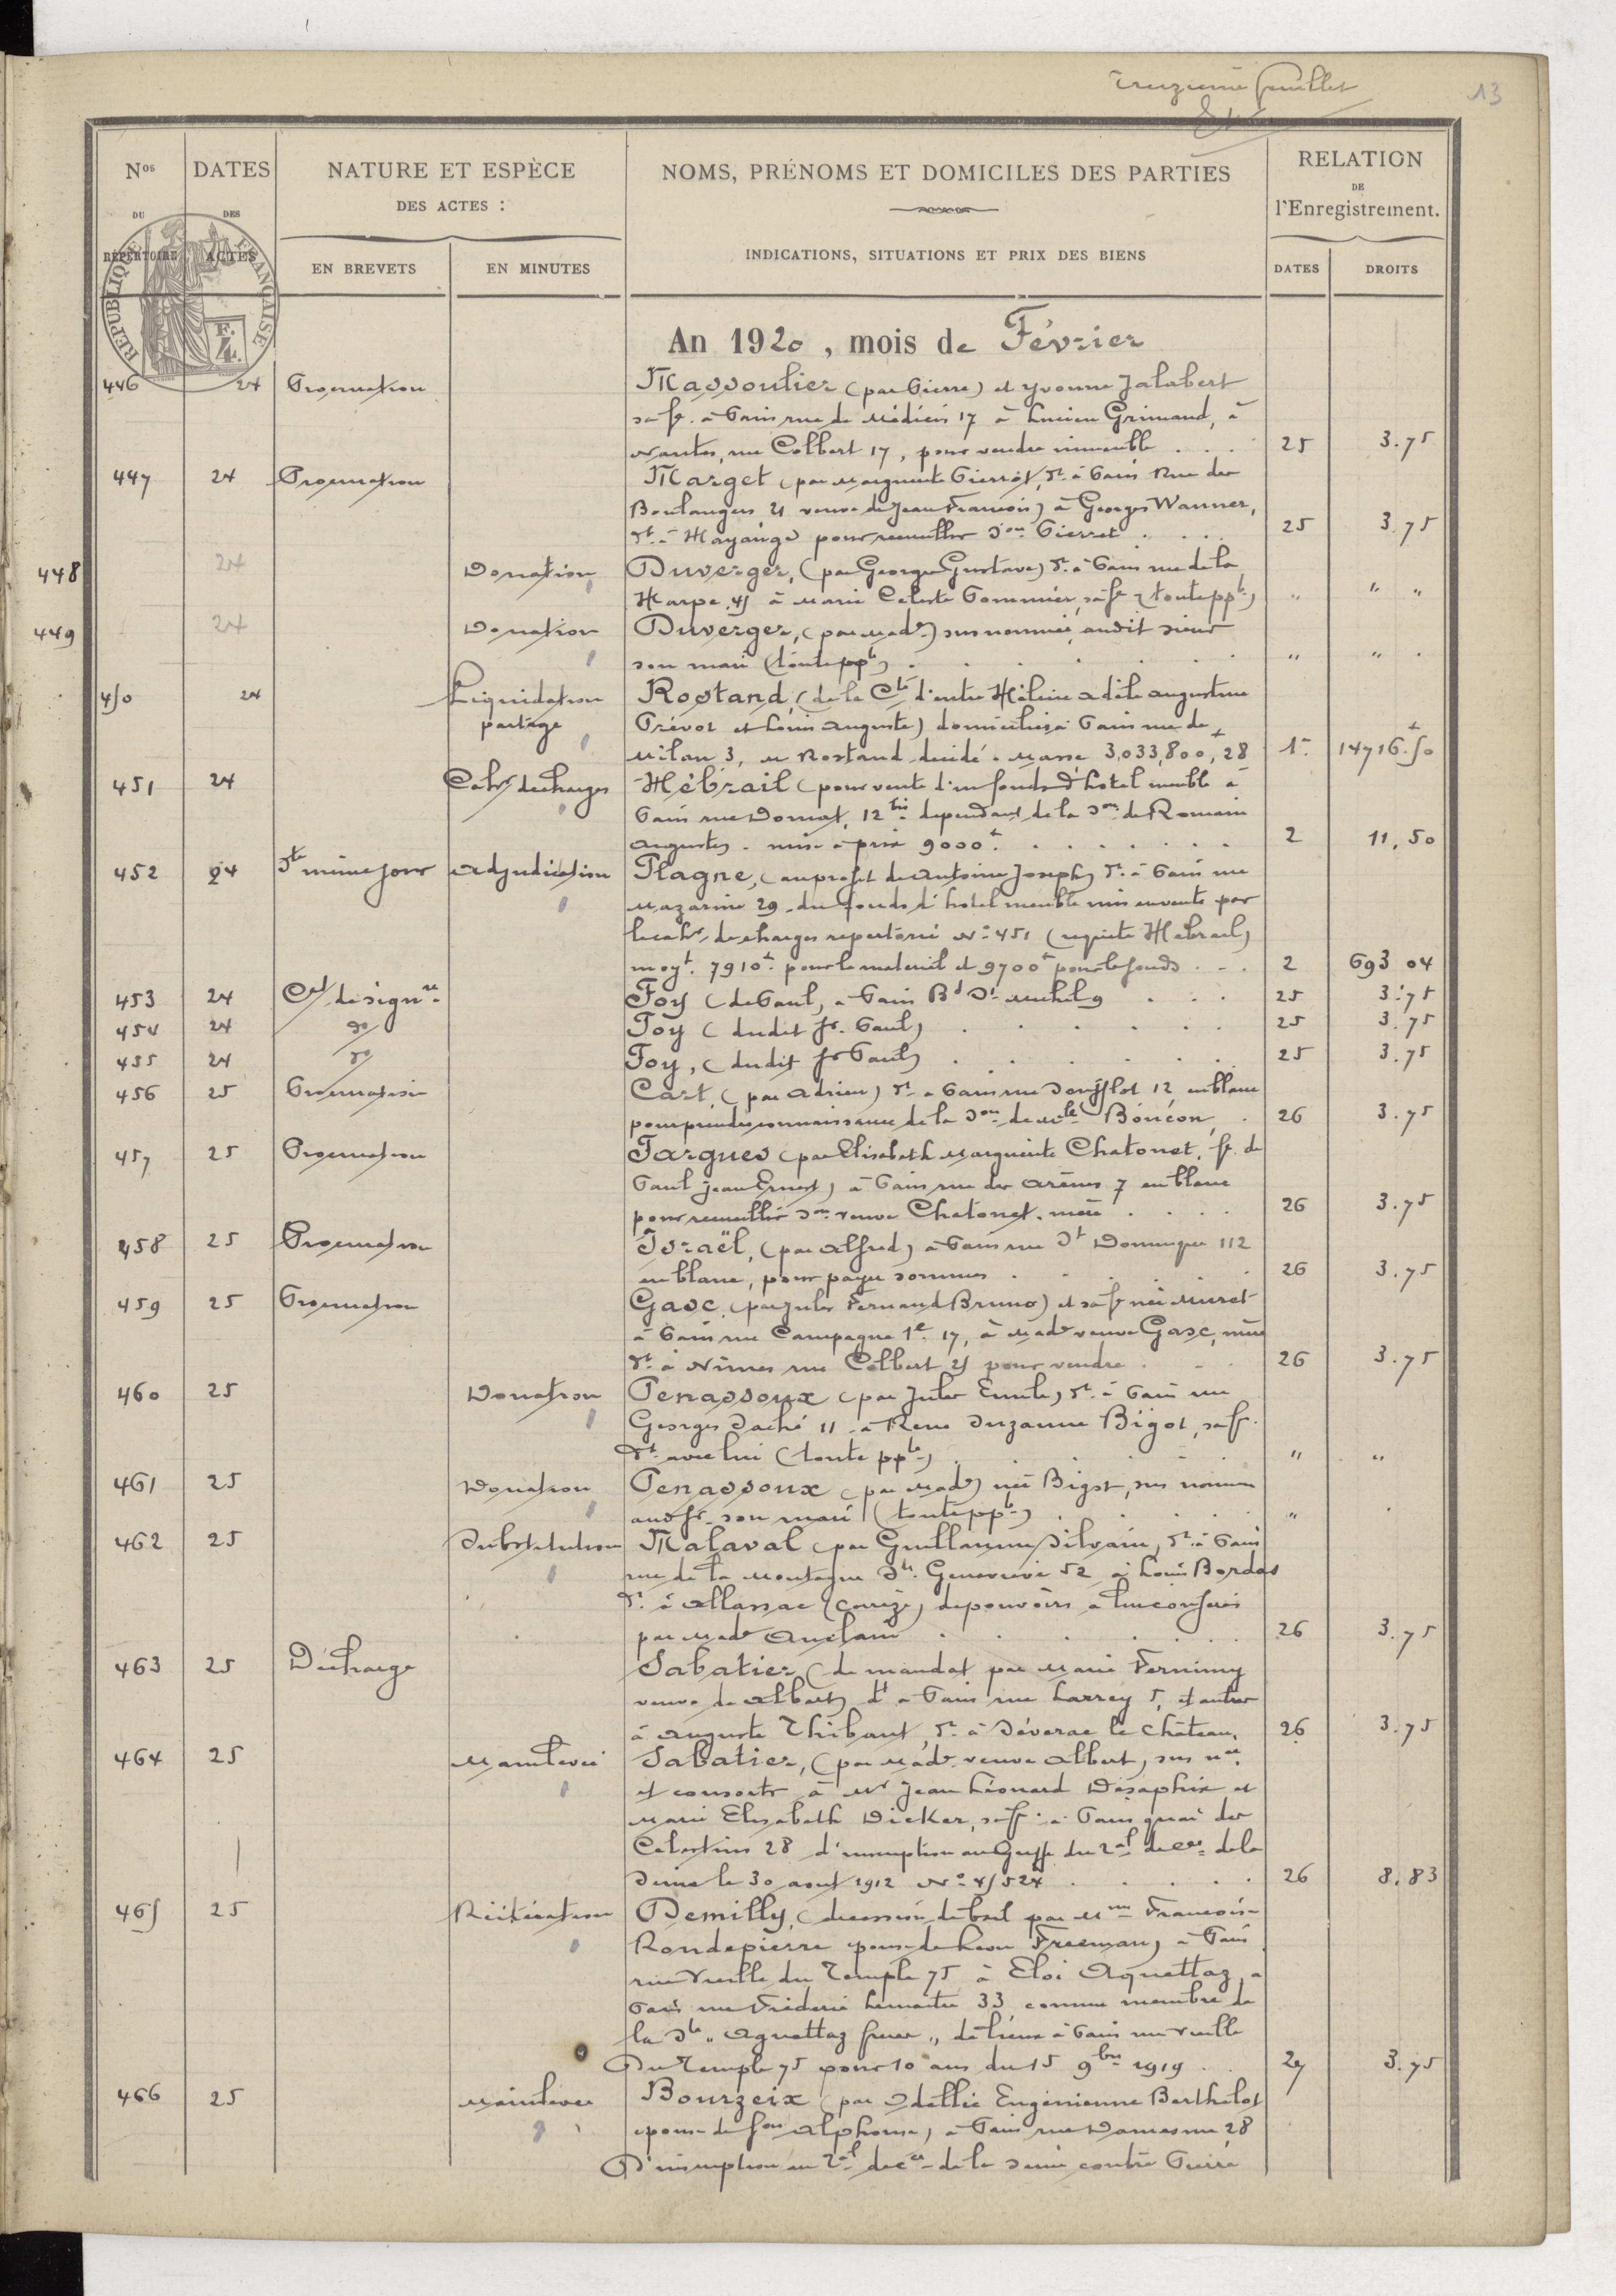 Treizième feuillet
13
Nos DU RÉPERTOIRE
DATES DES ACTES
NATURE ET ESPÈCE
DES ACTES :
EN BREVETS
EN MINUTES
NOMS, PRÉNOMS ET DOMICILES DES PARTIES
INDICATIONS, SITUATIONS ET PRIX DES BIENS
RELATION
DE
l'Enregistrement.
DATES
DROITS
RÉPUBLIQUE FRANÇAISE
An 1920, mois de Février
446 24 Procuration Massoulier (par Pierre) et Yvonne Jalabert
sa fe. à Paris rue de Médicis 17 à Lucien Grimaud, à
Nantes, rue Colbert 17, pour vendre immeuble . . . 25 3.75
447 24 Procuration Marget (par Marguerite Pierret, dt. à Paris Rue des
Boulangers 21 veuve de Jean François) à Georges Wanner,
dt. à Hayange pour recueillir son Pierret . . . 25 3.75
448 24 Donation Duverger, (par Georges Gustave) dt. à Paris rue de la
Harpe 45 à Marie Celeste Pommier, sa fe (toute ppté) " " "
449 24 Donation Duverger, (par Made) sus nommée, audit sieur
son mari (toute ppté) . . . " " .
450 24 Liquidation Rostand, (de la Cté d'entre Hélène Adèle Augustine
partage Prévot et Louis Auguste) domiciliés à Paris rue de
Milan 3, M Rostand décédé. Masse 3,033,800+28 1er 14716.50
451 24 Cahr de charges Hébrail (pour vente d'un fonds d'hotel meublé à
Paris rue Domat, 12bis dependant de la son de Romain
Auguste) . mise à prix 9000f . . . 2 11,50
452 24 dt même jour Adjudication Plagne, (au profit de Antoine Joseph) dt. à Paris rue
Mazarine 29. du fonds d'hotel meublé mis en vente par
le cahr de charges repertorié No 451 (requête Hébrail)
moyt. 7910f pour le materiel et 9700f pour le fonds . . . 2 693 04
453 24 Cat de signre Foy (de Paul, à Paris Bd St Michel 9 . . . 25 3.75
454 24 do Foy (dudit sr. Paul) . . . 25 3.75
455 24 do Foy, (dudit sr Paul) . . . 25 3.75
456 25 Procuration Cart, (par Adrien) dt à Paris rue Soufflot 12, en blanc
pour prendre connaissance de la son de Mlle Boncon . 26 3.75
457 25 Procuration Fargues (par Elisabeth Marguerite Chatonet, fe. de
Paul Jean Ernest) à Paris rue des Arènes 7 en blanc
pour recueillir son veuve Chatonet. mère . . . 26 3.75
458 25 Procuration Israël, (par Alfred) à Paris rue St Dominique 112
en blanc, pour payer sommes . . . 26 3.75
459 25 Procuration Gasc (par Jules Fernand Bruno) et sa fe née Muret
à Paris rue Campagne 1e. 17, à Made veuve Gasc, mère
dt. à Nîmes rue Colbert 25 pour vendre . . . 26 3.75
460 25 Donation Penassoux (par Jules Emile) dt. à Paris rue
Georges Saché 11 à Rene Suzanne Bigot, sa fe.
dt. avec lui (toute ppté) . . . " "
461 25 Donation Penassoux (par Made) née Bigot, sus nommée
aud sr. son mari (toute ppté) . . . " .
462 25 Substitution Malaval (par Guillaume Silvain, dt. à Paris
rue de la Montagne Ste Geneviève 52 à Louis Bordas
dt. à Allassac (Corrèze) de pouvoirs à lui conférés
par Made . . . 26 3.75
463 25 Décharge Sabatier (de mandat par Marie Fernimy
veuve de Albert) dt à Paris rue Larrey 5, et autres
à Auguste Thibaut, dt. à Séverac le Château. 26 3.75
464 25 Mainlevée Sabatier, (par Made veuve Albert, sus née
et consorts à Mr Jean Léonard Désaphix et
Marie Elisabeth Dicker, sa fe. à Paris quai des
Celestins 28 d'inscription au Greffe du Tal de Cce de la
Seine le 30 aout 1912 No 4/524 . . . 26 8.83
465 25 Réitération Demilly, (de cession de bail par Mme Françoise
Rondepierre épouse de Léon Freeman) à Paris
rue Vieille du Temple 75 à Eloi Aquettaz, à
Paris rue Frédéric Lemaitre 33 comme membre de
la Sté "Aquettaz frères", de lieux à Paris rue Vieille
du Temple 75 pour 10 ans du 15 9bre 1919 . . . 27 3.75
466 25 Mainlevée Bourzeix (par Odellie Engenienne Berthelot
épouse de Jean Alphonse) à Paris rue Damesme 28
d'inscription au Tal de Cce de la Seine contre Pierre